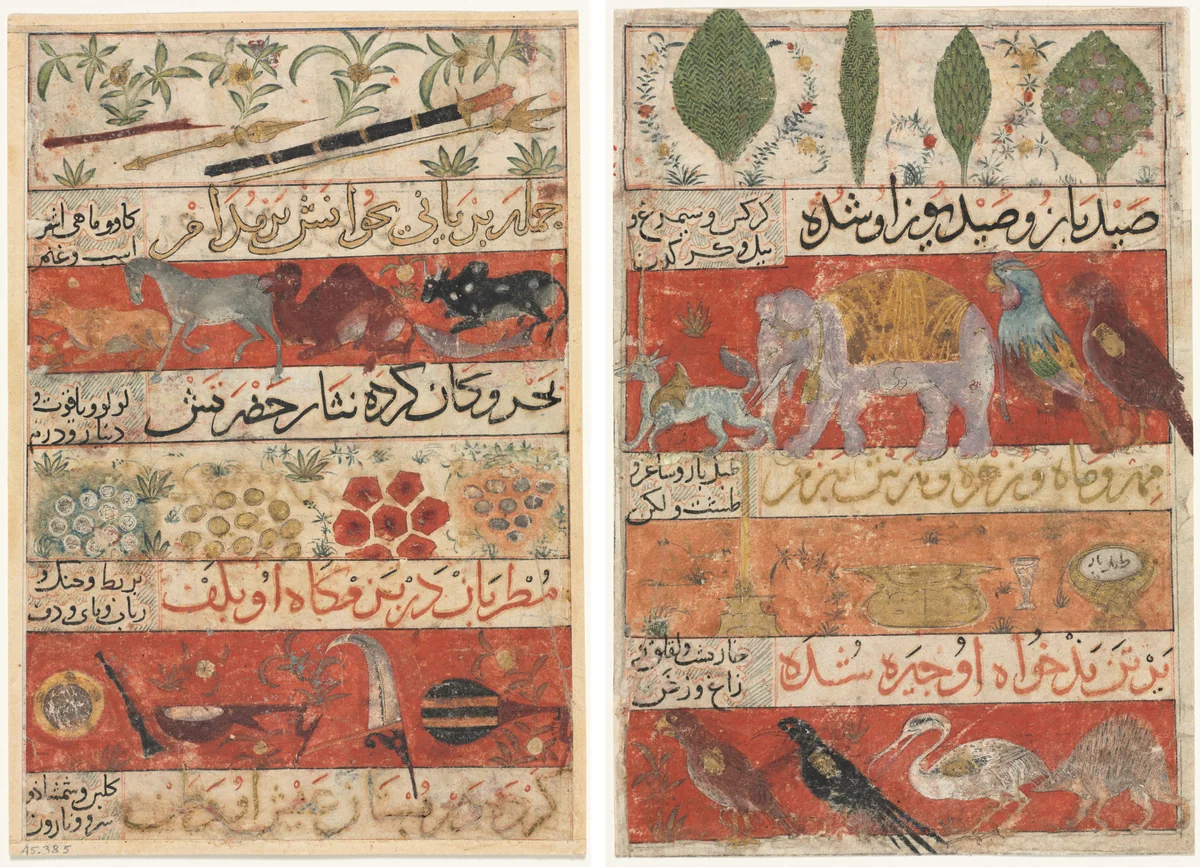 جمله بریانی بخوانش
کاو و ماهی اشتر
اسب و غنم
بحر و کان کرده نثار حضرتش
لولو و یاقوت و
دینار و درم
مطربان در بزمگاه او بکف
بربط و چنک و
رباب و نای و دف
کرده در بستان عیش او وطن
کلبن و شمشاد و
سرو و نارون
45.385
صید باز و صید یوز او شده
کرکس و سیمرغ و
پیل و کرکدن
مهر و ماه و زهره و
طبل باز و ساغر و
طشت و لکن
طبل باز
بر تن بدخواه او چیره شده
خارپشت و لقلق و
زاغ و زغن